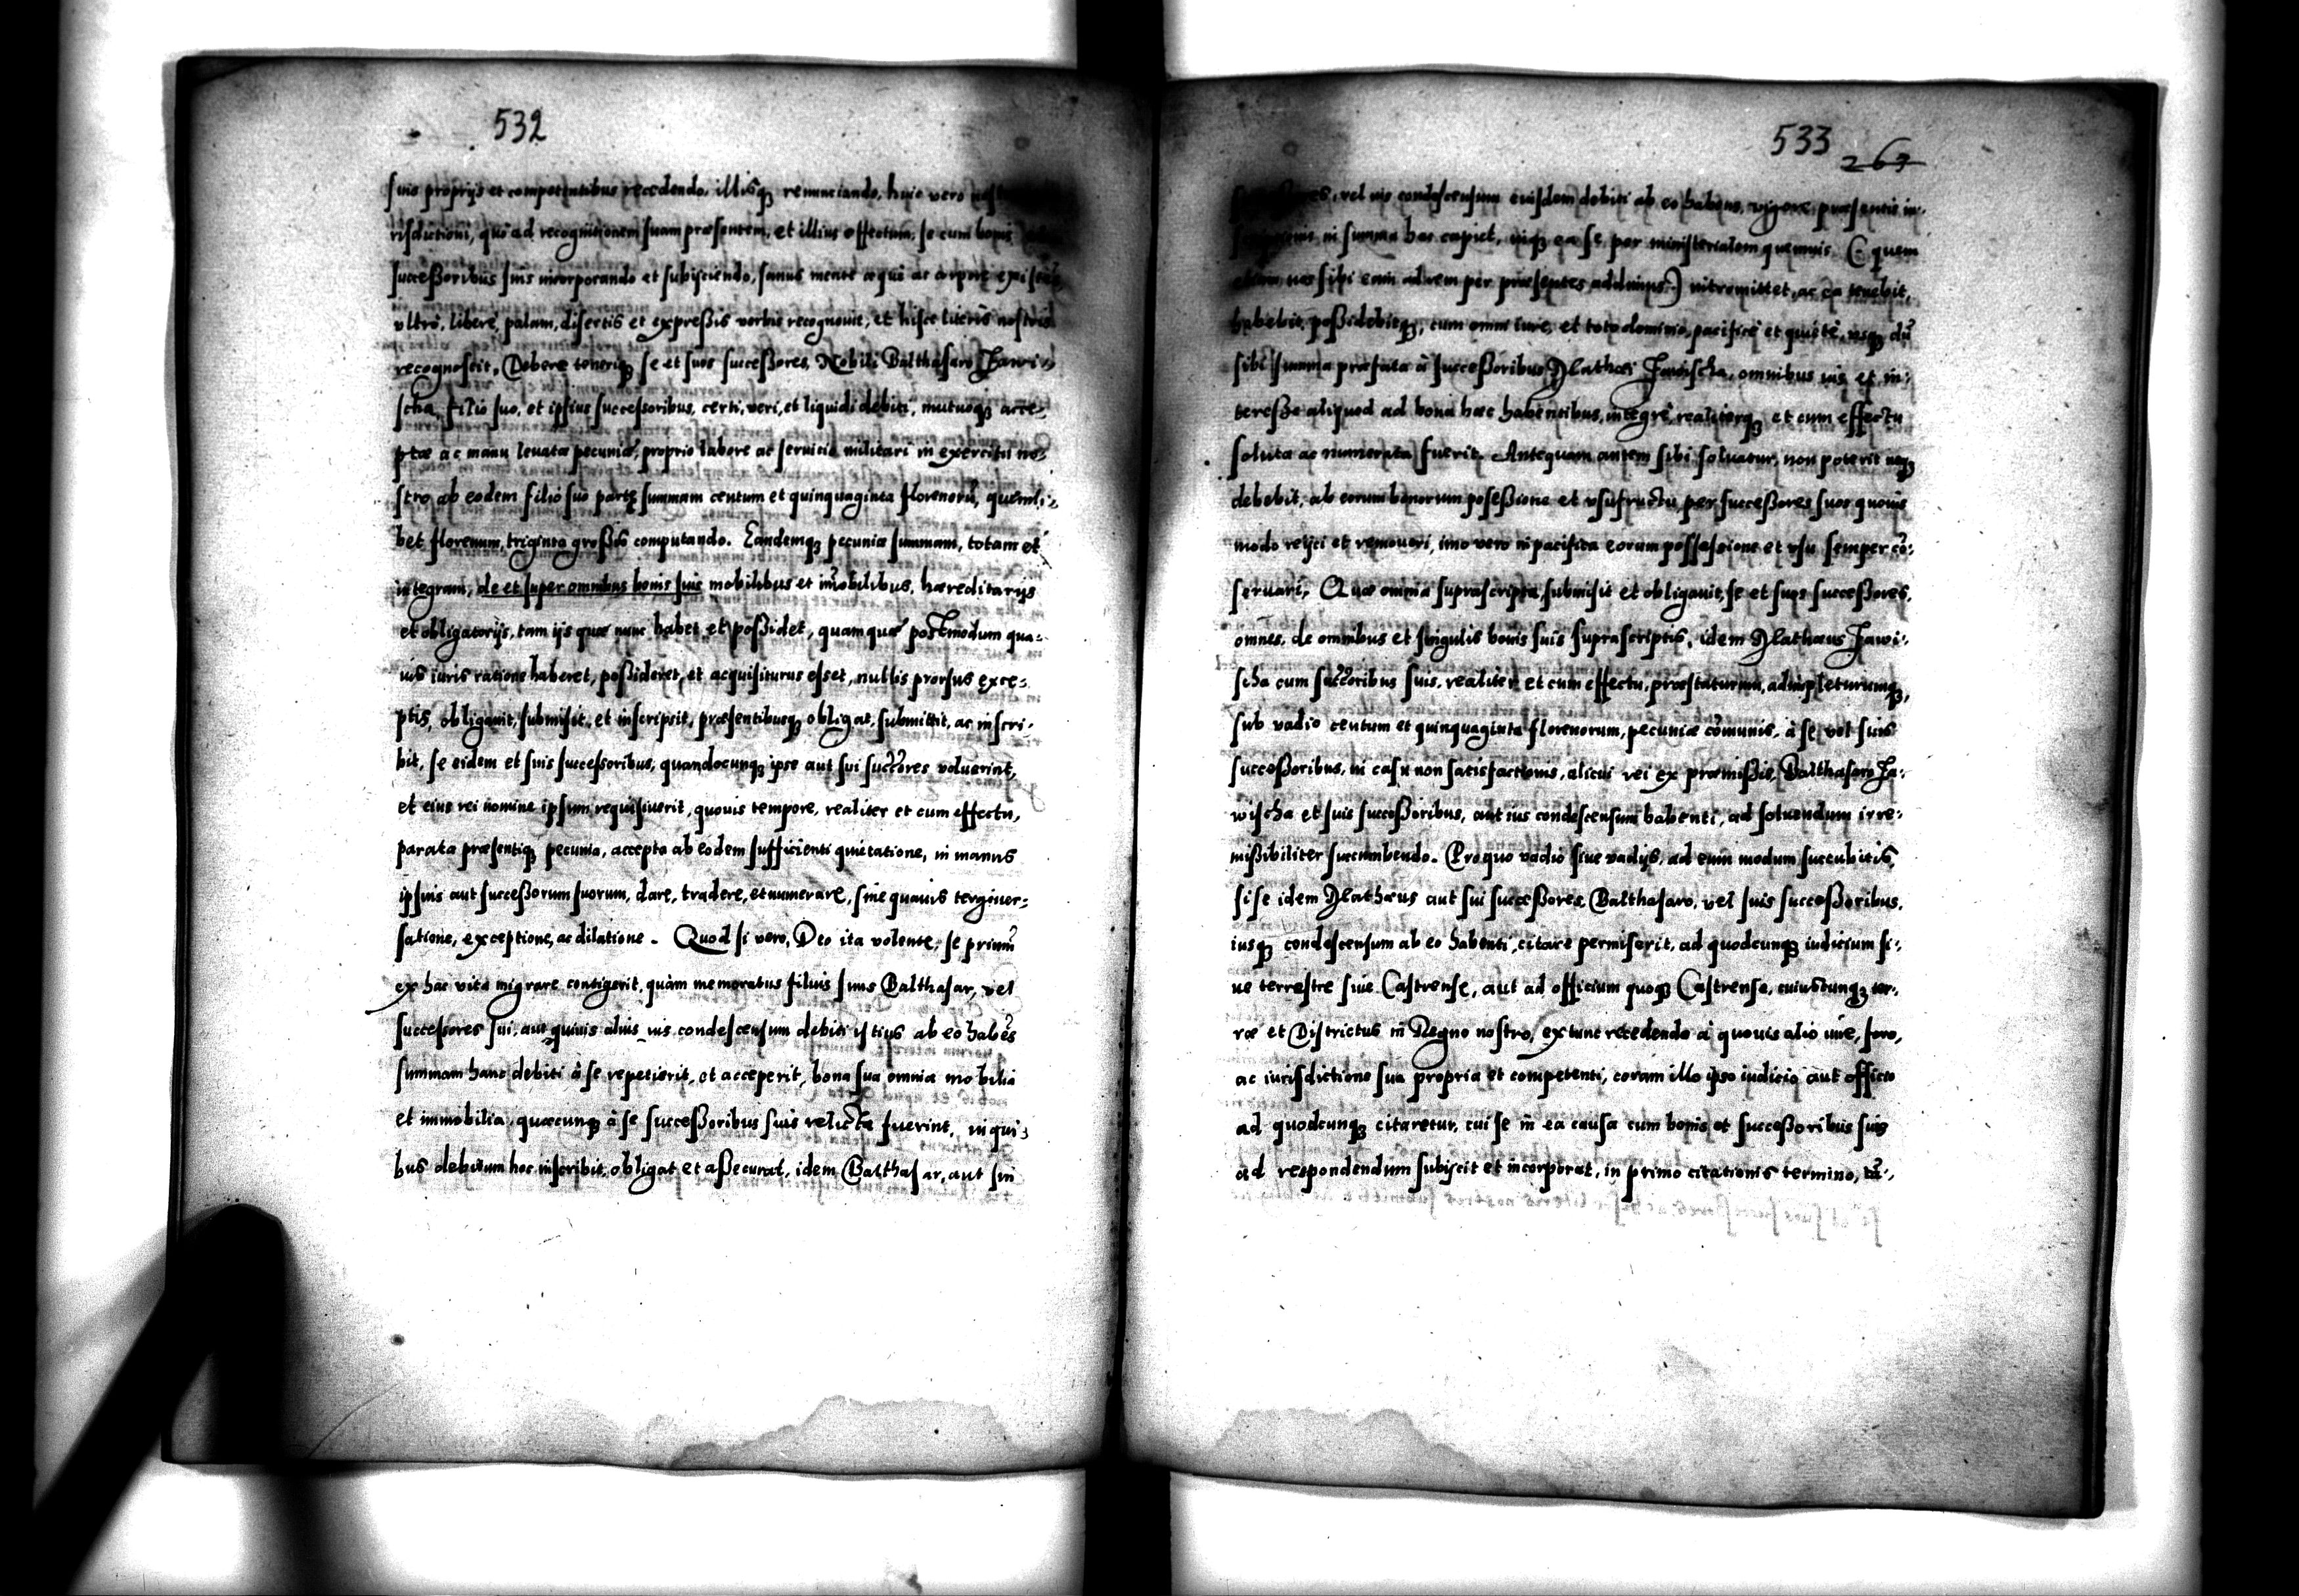 532
suis proprijs et competentibus recedendo, illisq̃ renunciando, huic vero
risdictioni, quo ad recognitionem suam præsentem, et illius effectum, se cum bonis
successoribus suis incorporando et subijciendo, sanus mente æque ac corpore existens
vltro, libere, palam, disertis et expressis verbis recognouit, et hisce literis nostris
recognoscit, Debere teneriq̃ se et suos successores, Nobili Balthasaro Jawi-
scha, filio suo, et ipsius successoribus, certi, veri, et liquidi debiti, mutuoq̃ acce-
ptæ ac manu leuatæ pecuniæ, proprio labore ac seruicio militari in exercitu no-
stro ab eodem filio suo partę summam centum et quinquaginta florenorũ, quemli-
bet florenum, triginta grossis computando. Eandemq̃ pecuniæ summam, totam et
integram, de et super omnibus bonis suis mobilibus et im̃obilibus, hæreditarijs
et obligatorijs, tam ijs quæ nunc habet et possidet, quam quæ postmodum qua-
uis iuris ratione haberet, possideret, et acquisiturus esset, nullis prorsus exce-
ptis, obligauit, submisit, et inscripsit, præsentibusq̃ obligat, submittit, ac inscri-
bit, se eidem et suis successoribus, quandocunq̃ ipse aut sui succ̃ores voluerint,
et eius rei nomine ipsum requisiuerit, quouis tempore, realiter et cum effectu,
parata præsentiq̃ pecunia, accepta ab eodem sufficienti quietatione, in manus
ipsius aut successorum suorum, dare, tradere, et numerare, sine quauis tergiuer-
satione, exceptione, ac dilatione. Quod si vero, Deo ita volente, se primũ
ex hac vita migrare contigerit, quàm memoratus filius suus Balthasar, vel
successores sui, aut quiuis alius ius condescensum debiti istius ab eo habẽs
summam hanc debiti à se repetierit, et acceperit, bona sua omnia mobilia
et immobilia, quæcunq̃ à se successoribus suis relicta fuerint, in qui-
bus debitum hoc inscribit, obligat et assecurat, idem Balthasar, aut sui
533
263
vel ius condescensum eiusdem debiti ab eo habens, vigore præsentis in-
in summa hac capiet, inq̃ ea se per ministerialem quemuis (quem
nos sibi eam ad rem per præsentes addimus) intromittet, ac ea tenebit,
habebit, possidebitq̃, cum omni iure, et toto dominio, pacifice et quiete, usq̃ dũ
sibi summa præfata à successoribus Mathæi Jawischa, omnibus ius et in-
teresse aliquod ad bona hæc habentibus, integre, realiterq̃ et cum effectu
soluta ac numerata fuerit. Antequam autem sibi soluatur, non poterit neq̃
debebit, ab eorum bonorum possessione et vsufructu, per successores suos quouis
modo reijci et remoueri, imo vero in pacifica eorum possessione et vsu semper cõ-
seruari. Quæ omnia suprascripta, submisit et obligauit, se et suos successores,
omnes, de omnibus et singulis bonis suis suprascriptis, idem Mathæus Jawi-
scha cum succ̃oribus suis, realiter et cum effectu, præstaturum, adimpleturumq̃,
sub vadio centum et quinquaginta florenorum, pecuniæ com̃unis, à se vel suis
successoribus, in casu non satisfactionis, alicui rei ex præmissis, Balthasaro Ja-
wischa et suis successoribus, aut ius condescensum habenti, ad soluendum irre-
missibiliter succumbendo. Pro quo vadio siue vadijs, ad eum modum succubitis,
si se idem Mathæus aut sui successores, Balthasaro, vel suis successoribus,
iusq̃ condescensum ab eo habenti, citare permiserit, ad quodcunq̃ iudicium si-
ue terrestre siue Castrense, aut ad officium quoq̃ Castrense, cuiuscunq̃ ter-
ræ et Districtus in Regno nostro, ex tunc recedendo à quouis alio iure, foro,
ac iurisdictione sua propria et competenti, coram illo ipso iudicio aut officio
ad quodcunq̃ citaretur, cui se in ea causa cum bonis et successoribus suis
ad respondendum subijcit et incorporat, in primo citationis termino,